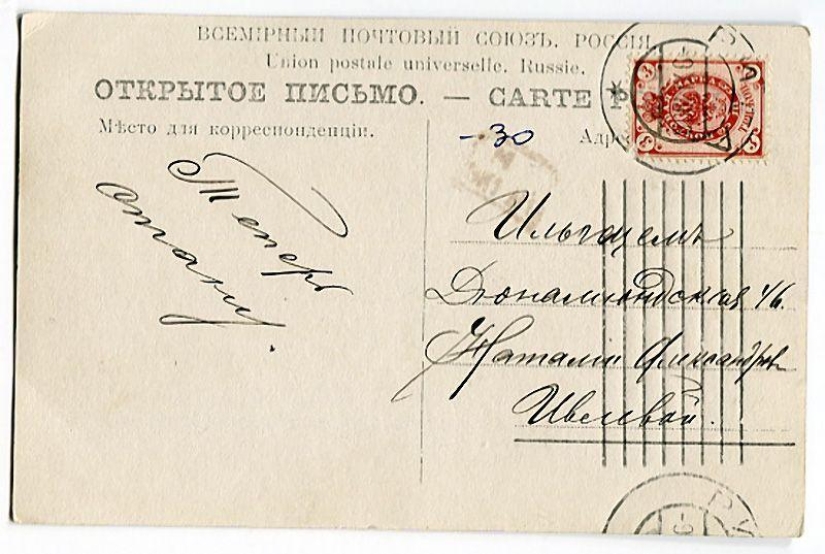 ВСЕМІРНЫЙ ПОЧТОВЫЙ СОЮЗЪ. РОССІЯ
Union postale universelle. Russie.
ОТКРЫТОЕ ПИСЬМО. — CARTE P
Мѣсто для корреспонденціи.
Адре
-30
3 3
3 3
Теперь
отвѣчу.
Ильгоцемъ
Дюнамюндская 4/6.
Наталіи Александров
Ивлевой.